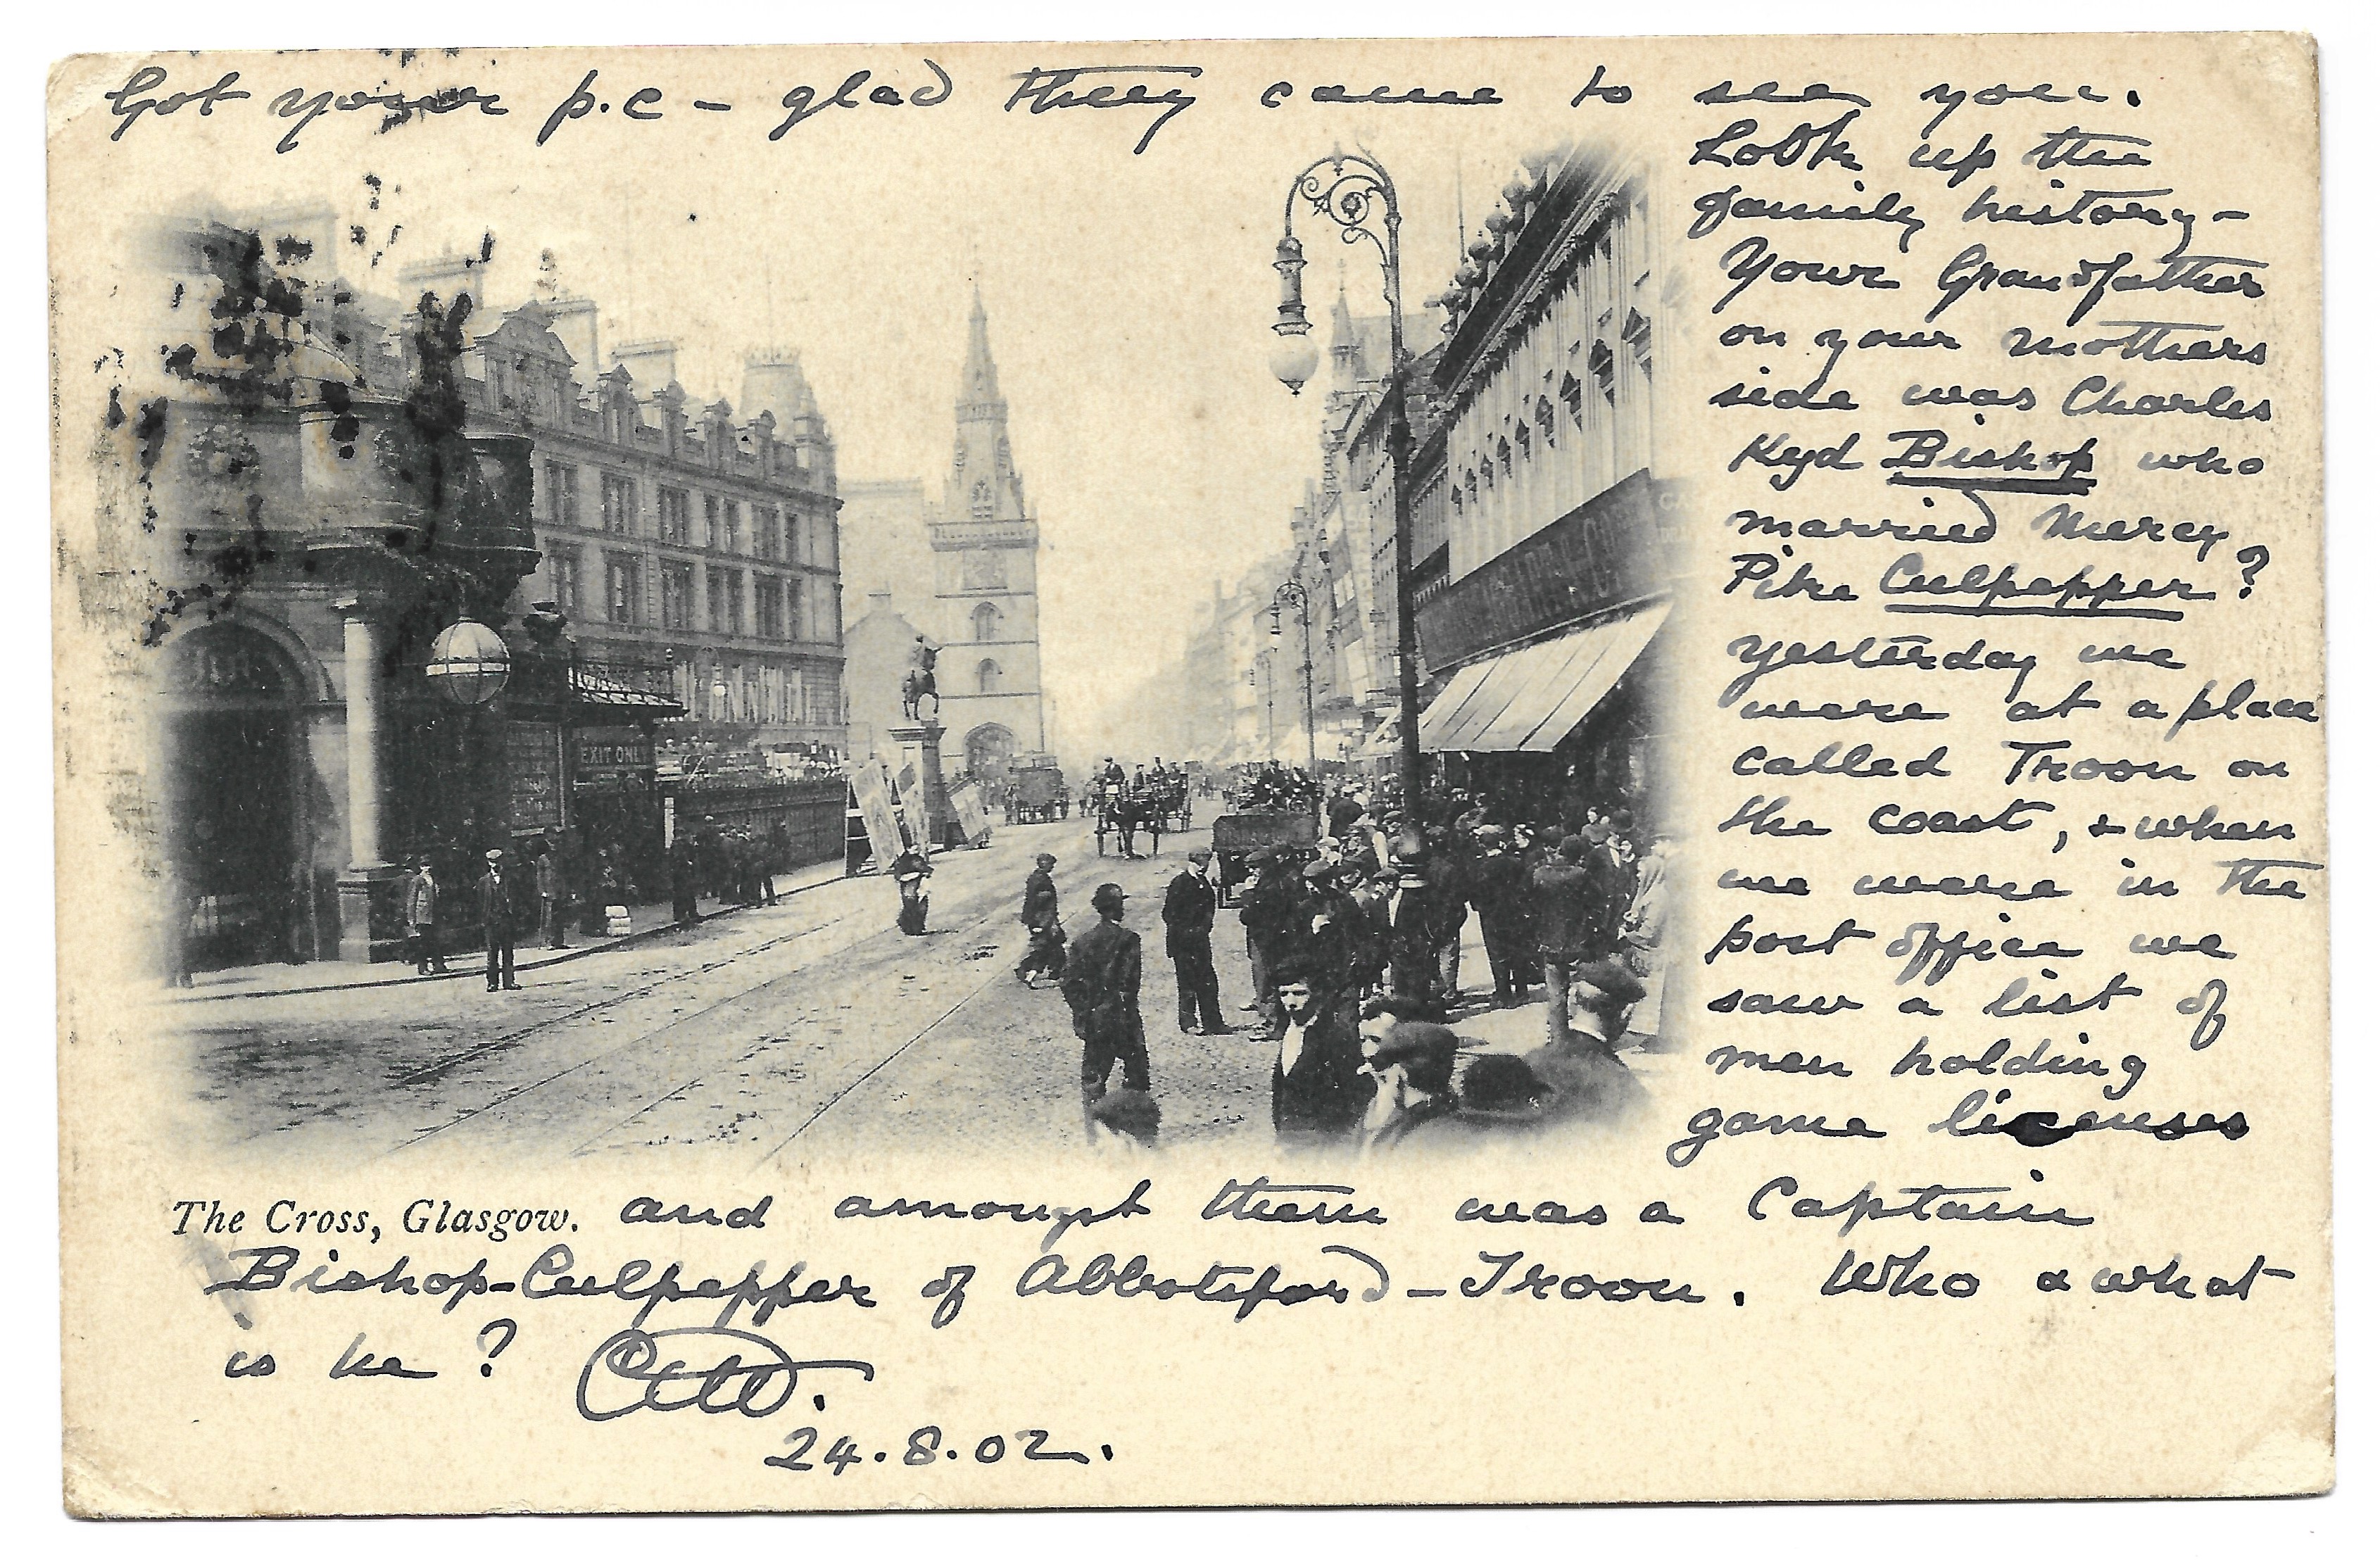 Got your p.c – glad they came to see you.
Look up the
family history –
Your Grandfather
on your mothers
side was Charles
Kyd Bishop who
married Mercy
Pike Culpepper?
yesterday we
were at a place
called Troon on
the coast, & when
we were in the
post office we
saw a list of
men holding
game licenses
The Cross, Glasgow. and amongst them was a Captain
Bishop-Culpepper of Abbotsford – Troon. Who & what
is he?
24.8.02.
EXIT ONLY
BAR